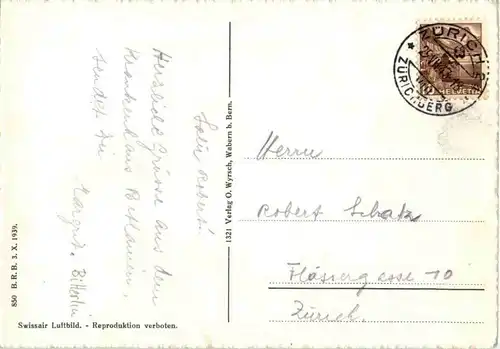 Lieb Robert!
Herzliche Grüsse aus dem
Krankenhaus Bethanien,
sendet Dir
Margrit.
850 B.R.B. 3. X. 1939.
Swissair Luftbild. - Reproduktion verboten.
1321 Verlag O. Wyrsch, Wabern b. Bern.
ZÜRICH
ZÜRICHBERG
HELVETIA
Herrn
Robert Schatz
10
Zürich.